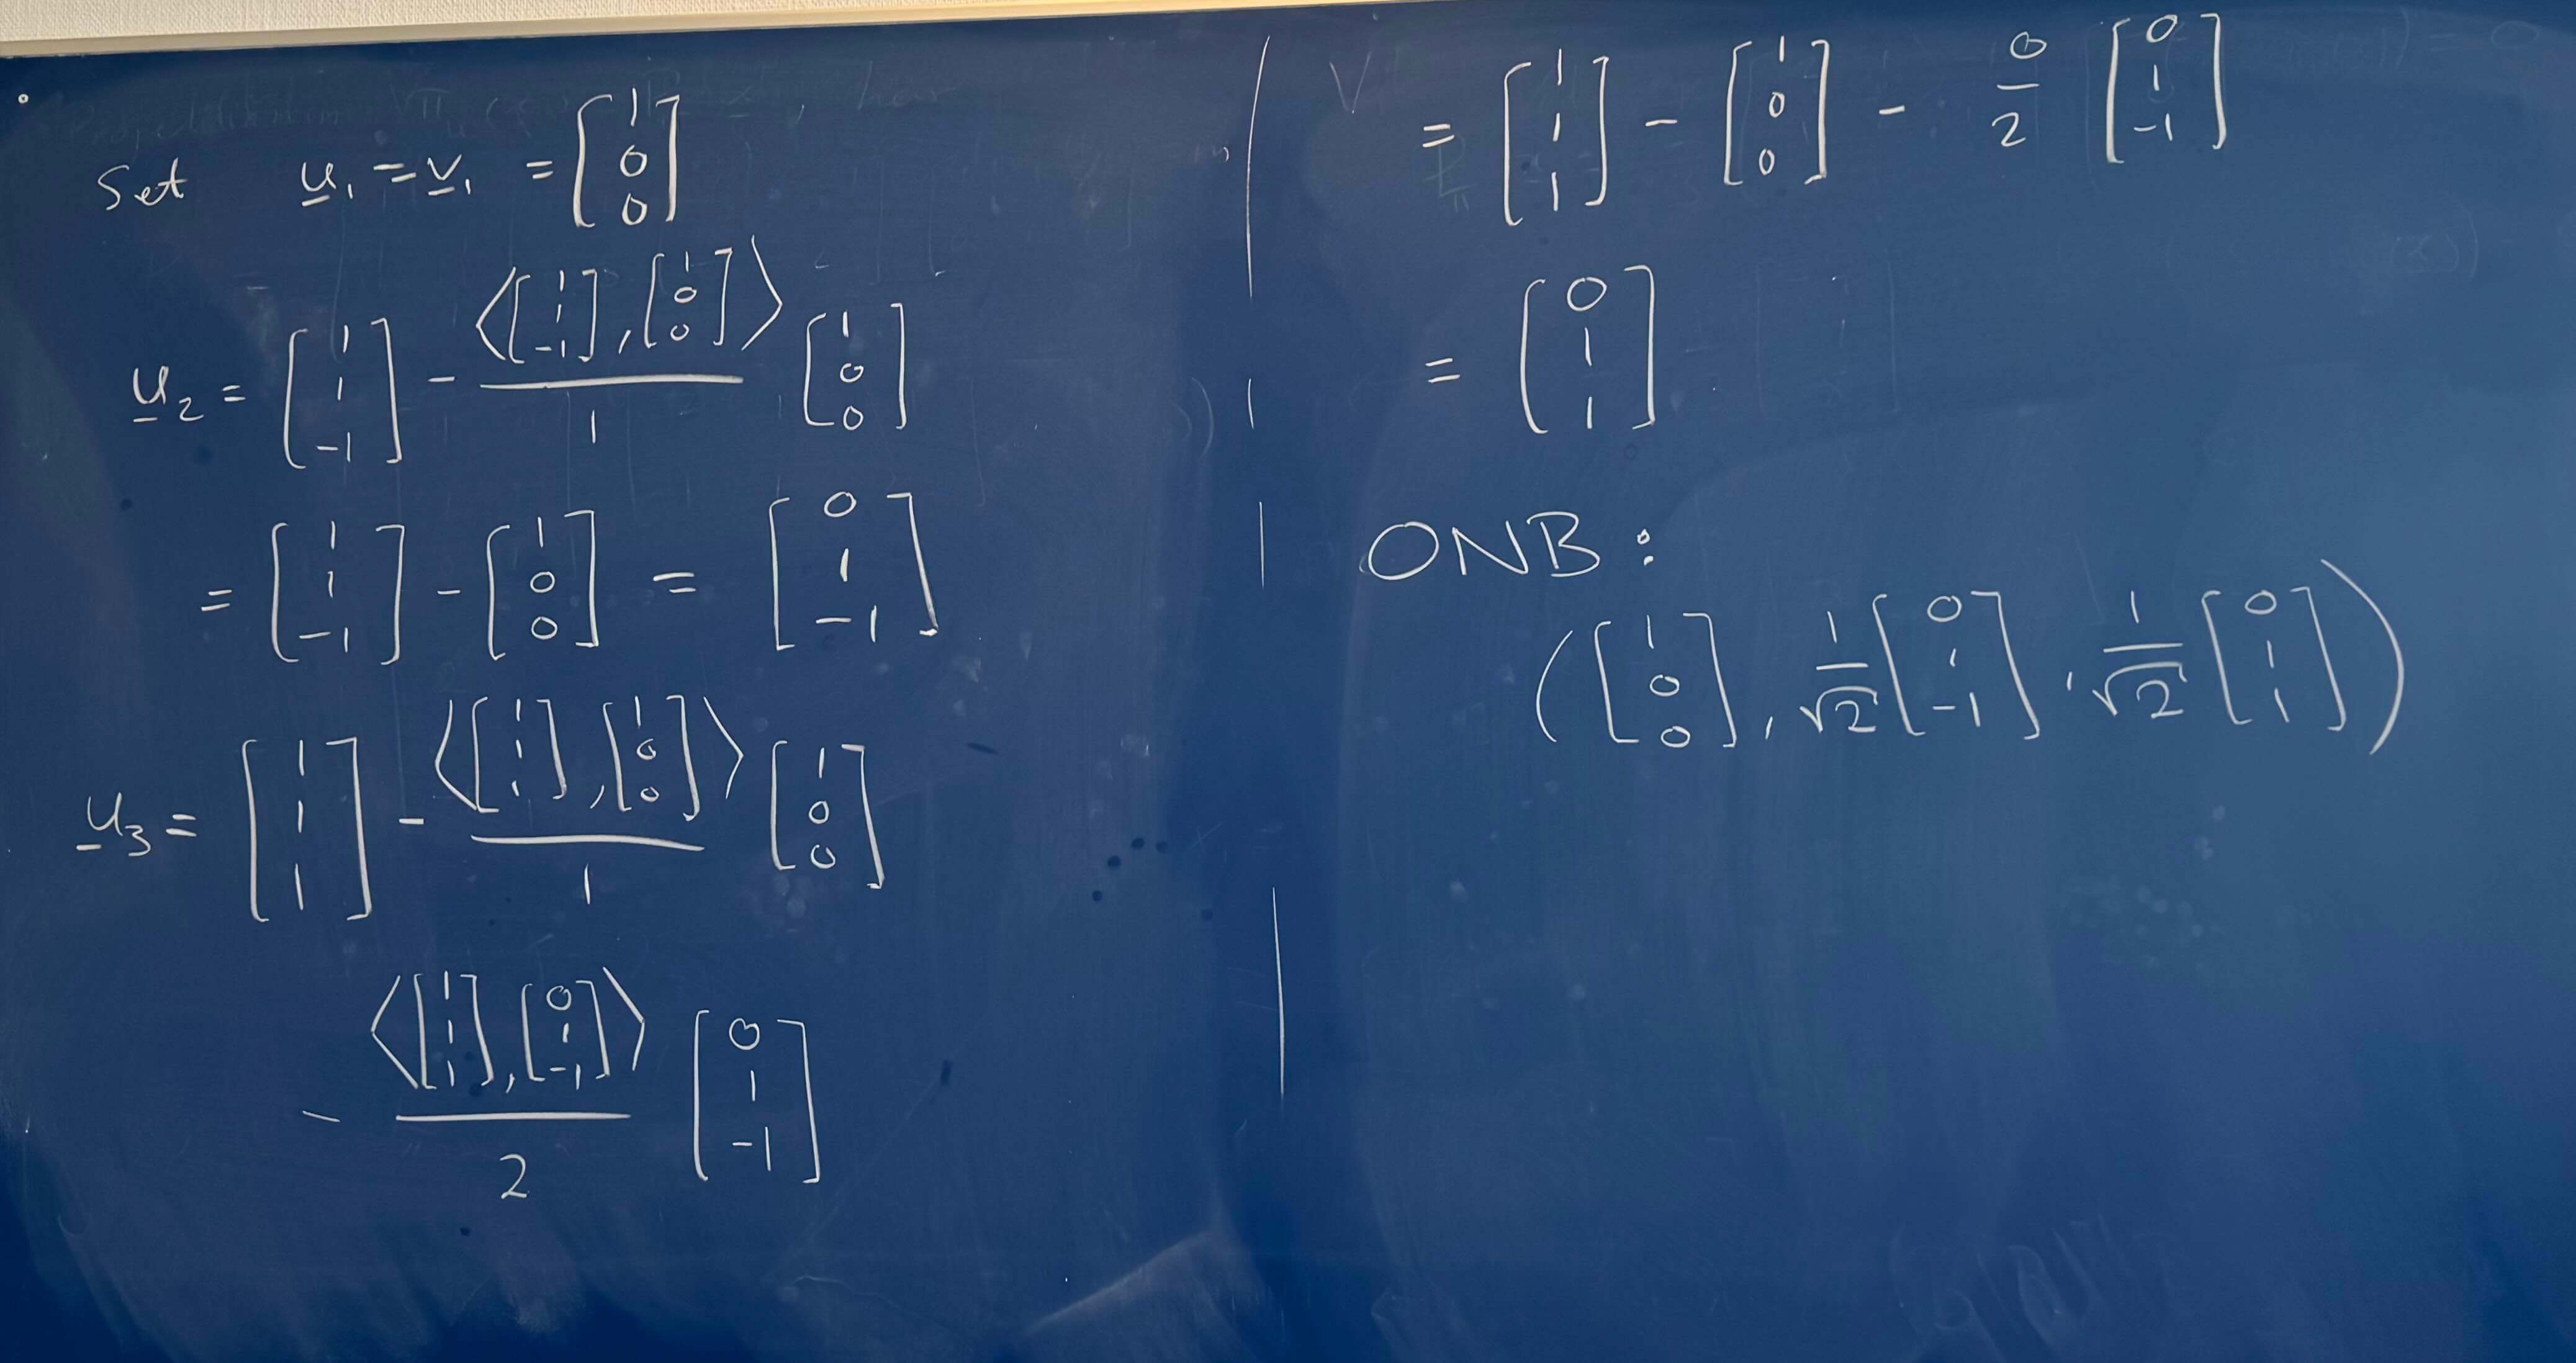 Set u₁ = v₁ = [1 0 0]
u₂ = [1 1 -1] - ⟨[1 1 -1], [1 0 0]⟩ / 1 [1 0 0]
= [1 1 -1] - [1 0 0] = [0 1 -1]
u₃ = [1 1 1] - ⟨[1 1 1], [1 0 0]⟩ / 1 [1 0 0]
- ⟨[1 1 1], [0 1 -1]⟩ / 2 [0 1 -1]
= [1 1 1] - [1 0 0] - 0/2 [0 1 -1]
= [0 1 1]
ONB:
([1 0 0], 1/√2 [0 1 -1], 1/√2 [0 1 1])